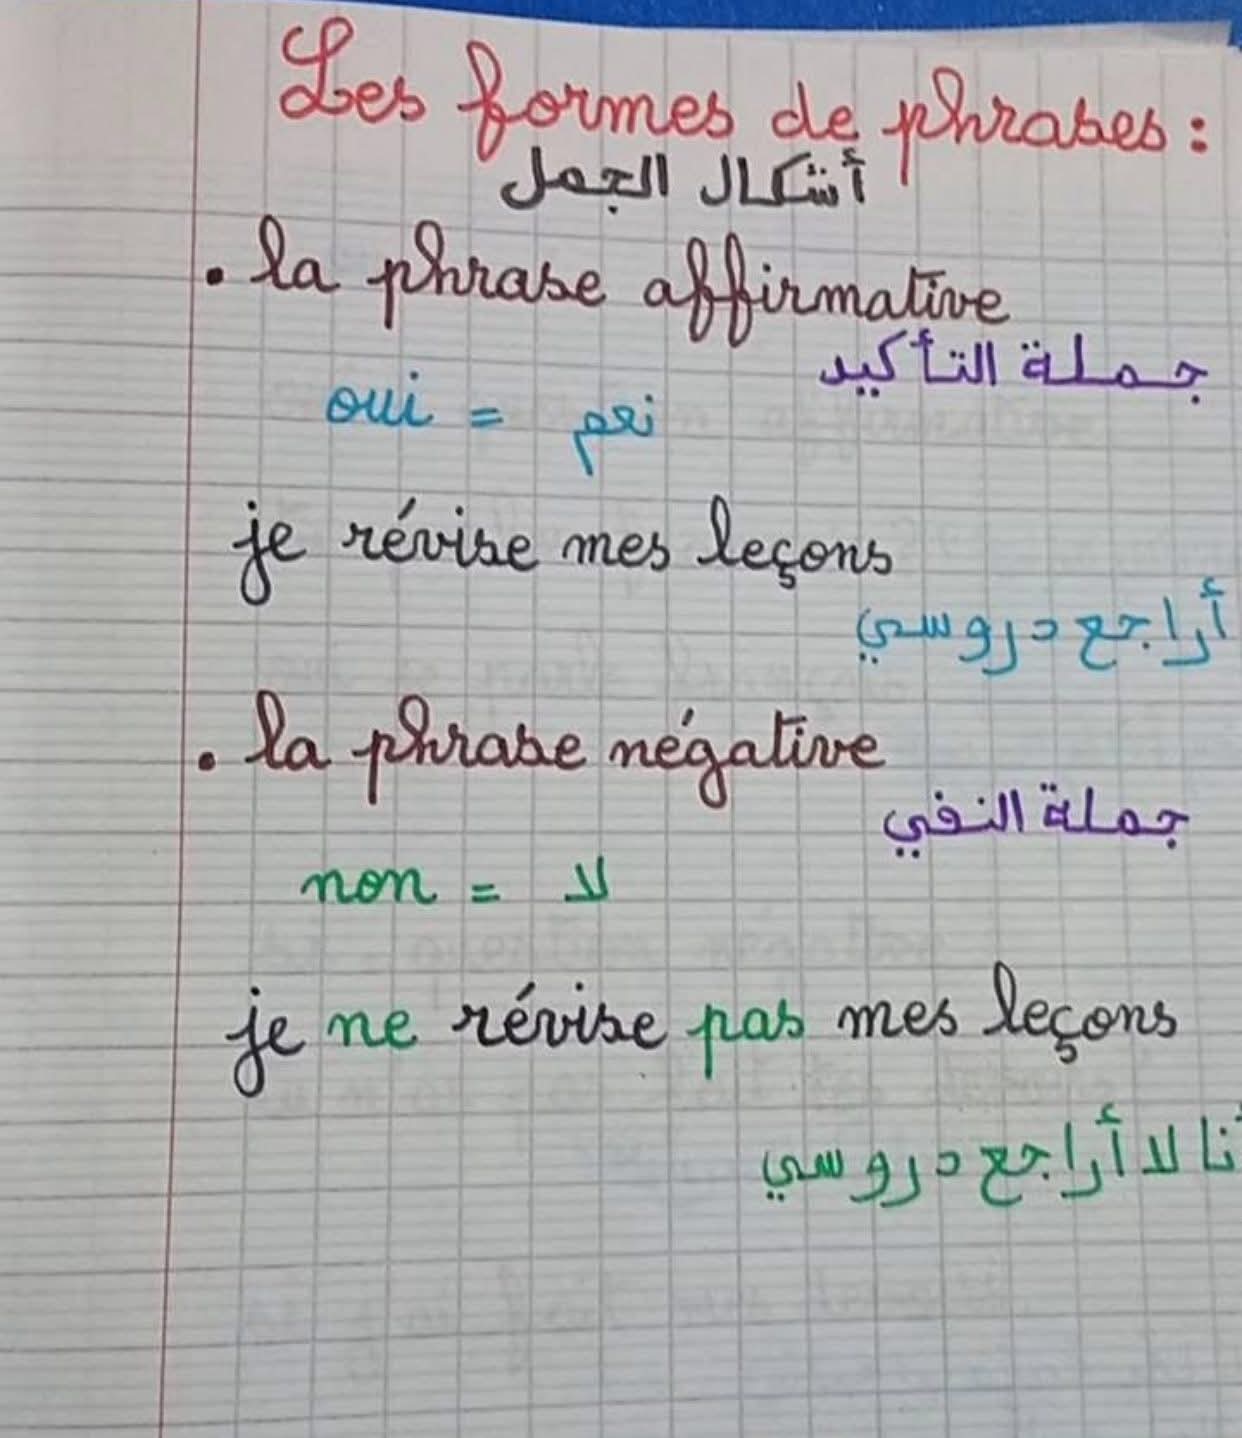 Les formes de phrases :
أشكال الجمل
. la phrase affirmative
جملة التأكيد
oui = نعم
je révise mes leçons
أراجع دروسي
. la phrase négative
جملة النفي
non = لا
je ne révise pas mes leçons
أنا لا أراجع دروسي